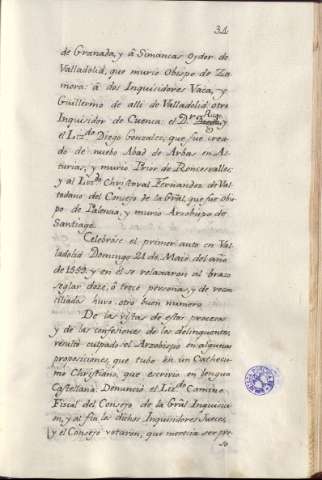 34
de Granada, y â Simancas Oydor de
Valladolid, que murio Obispo de Za-
mora: â dos Inquisidores Vaca, y
Guillermo de alli de Valladolid, otro
Inquisidor de Cuenca: el D.r Riego
y
el Liz.do Diego Gonzalez, que fue crea-
do de nuebo Abad de Arbas en As-
turias, y murio Prior de Roncesvalles:
y al Liz.do Christoval Fernandez de Val-
todano del Consejo de la Gñal, que fue Obis-
po de Palencia, y murio Arzobispo de
Santiago.
Celebròse el primer auto en Va-
lladolid Domingo 21 de Maio del año
de 1559. y en èl se relaxaron al brazo
seglar doze, ô treçe personas, y de recon-
ciliada huvo otro buen numero.
De las vistas de estos procesos
y de las confesiones de los delinquentes,
resultò culpado el Arzobispo en algunas
proposiciones, que tubo en un Cathecis-
mo Christiano, que escrivio en lengua
Castellana. Denunciò el Liz.do Camino
Fiscal del Consejo de la Gñal Inquisi-
on, y al fin los dichos Inquisidores Jueces,
y el Consejo votaron, que merecia ser pre-
so